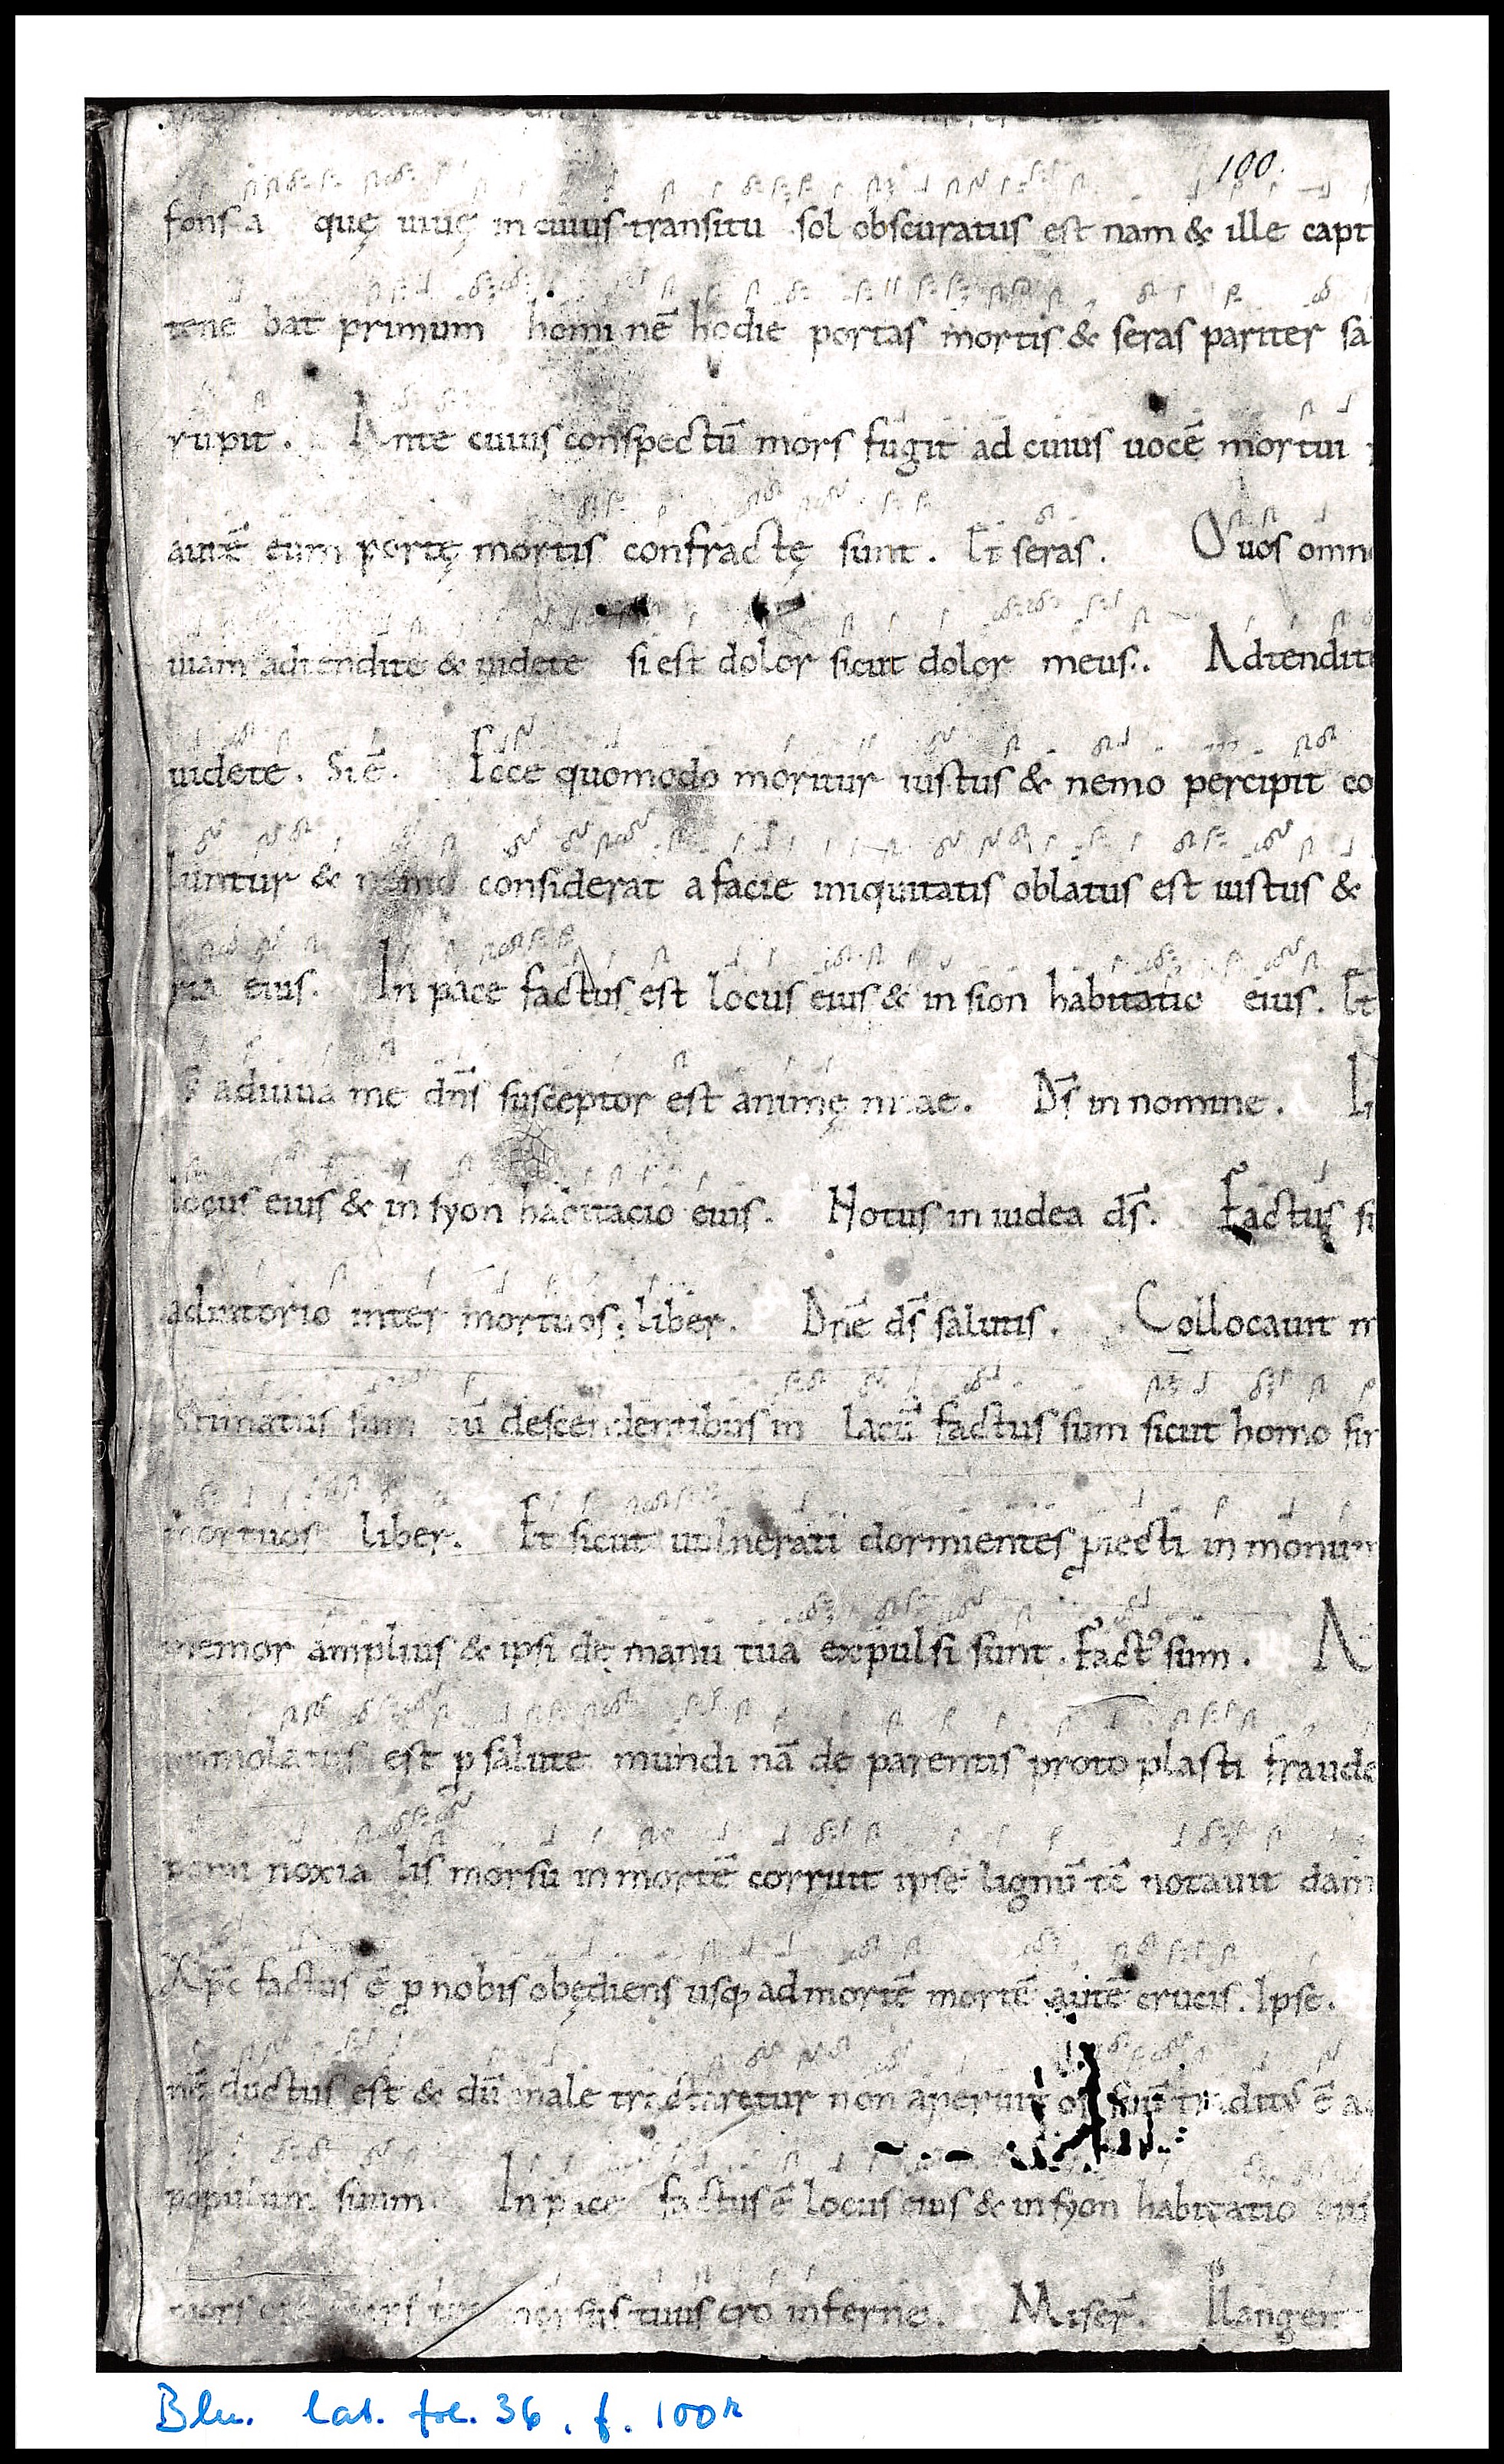 100.
fons a quę uiuę in cuius transitu sol obscuratus est nam & ille capt
tene bat primum homi nē hodie portas mortis & seras pariter sa
rupit. Ante cuius conspectū mors fugit ad cuius uocē mortui
autē eum portę mortis confractę sunt. Et seras. Quos omn
uiam adtendite & uidete si est dolor sicut dolor meus. Adtendite
uidete. Si ē. Ecce quomodo moritur iustus & nemo percipit co
luntur & nemo considerat a facie iniquitatis oblatus est iustus &
ria eius. In pace factus est locus eius & in sion habitatio eius. Et
adiuua me dn̄s susceptor est animę meae. Ds̄ in nomine. Li
locus eius & in syon habitacio eius. Notus in iudea ds̄. Factus si
adiutorio inter mortuos liber. Dnē ds̄ salutis. Collocauit m
stimatus sum cū descendentibus in lacū factus sum sicut homo sin
mortuos liber. Et sicut uulnerati dormientes ꝓiecti in monum
memor amplius & ipsi de manu tua expulsi sunt. Fact᾽ sum. A
immolatus est ꝓ salute mundi nā de parentis proto plasti fraude
pomi noxia lis morsu in mortē corruit ipse lignū tē notauit dam
Xp̄c factus ē ꝓ nobis obędiens usq; ad mortē mortē autē crucis. Ipse.
nē ductus est & dū male tractaretur non aperuit os suū traditus ē a
populum suum In pace factus ē locus eius & in syon habitatio eiu
mors ero mors tua morsus tuus ero inferne. Miser̄. Plange
Bln. lat. fol. 36, f. 100r